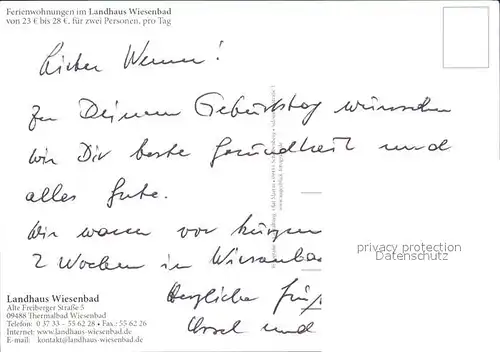 Ferienwohnungen im Landhaus Wiesenbad
von 23 € bis 28 €, für zwei Personen, pro Tag
Lieber Werner!
Zu Deinem Geburtstag wünschen
wir Dir beste Gesundheit und
alles Gute.
Wir waren vor kurzem
2 Wochen in Wiesenba
Herzliche Grüß
Ursel und
privacy protection
Datenschutz
Landhaus Wiesenbad
Alte Freiberger Straße 5
09488 Thermalbad Wiesenbad
Telefon: 0 37 33 - 55 62 28 • Fax.: 55 62 26
Internet: www.landhaus-wiesenbad.de
E-mail: kontakt@landhaus-wiesenbad.de